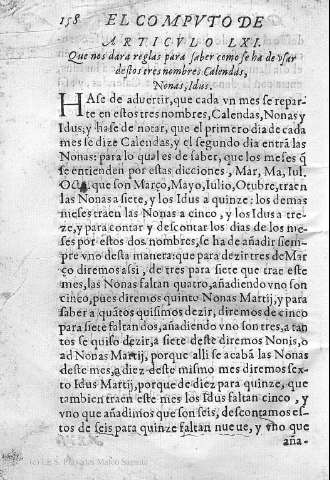 158 EL COMPVTO DE
ARTICVLO LXI.
Que nos dara reglas para saber como se ha de vsar
destos tres nombres Calendas,
Nonas, Idus.
HAse de aduertir, que cada vn mes se repar-
te en estos tres nombres, Calendas, Nonas y
Idus: y hase de notar, que el primero dia de cada
mes se dize Calendas, y el segundo dia entrã las
Nonas: para lo qual es de saber, que los meses q̃
se entienden por estas dicciones, Mar, Ma, Iul.
Octa. que son Março, Mayo, Iulio, Otubre, traen
las Nonas a siete, y los Idus a quinze: los demas
meses traen las Nonas a cinco, y los Idus a tre-
ze, y para contar y descontar los dias de los me-
ses por estos dos nombres, se ha de añadir siem-
pre vno desta manera: que para dezir tres de Mar
ço diremos assi, de tres para siete que trae este
mes, las Nonas faltan quatro, añadiendo vno son
cinco, pues diremos quinto Nonas Martij, y para
saber a quãtos quisimos dezir, diremos de cinco
para siete faltan dos, añadiendo vno son tres, a tan
tos se quiso dezir, a siete deste diremos Nonis, o
ad Nonas Martij, porque alli se acabã las Nonas
deste mes, a diez deste mismo mes diremos sex-
to Idus Martij, porque de diez para quinze, que
tambien traen este mes los Idus faltan cinco, y
vno que añadimos que son seis, descontamos es-
tos de seis para quinze faltan nueue, y vno que
aña-
(c) I.E.S. P.